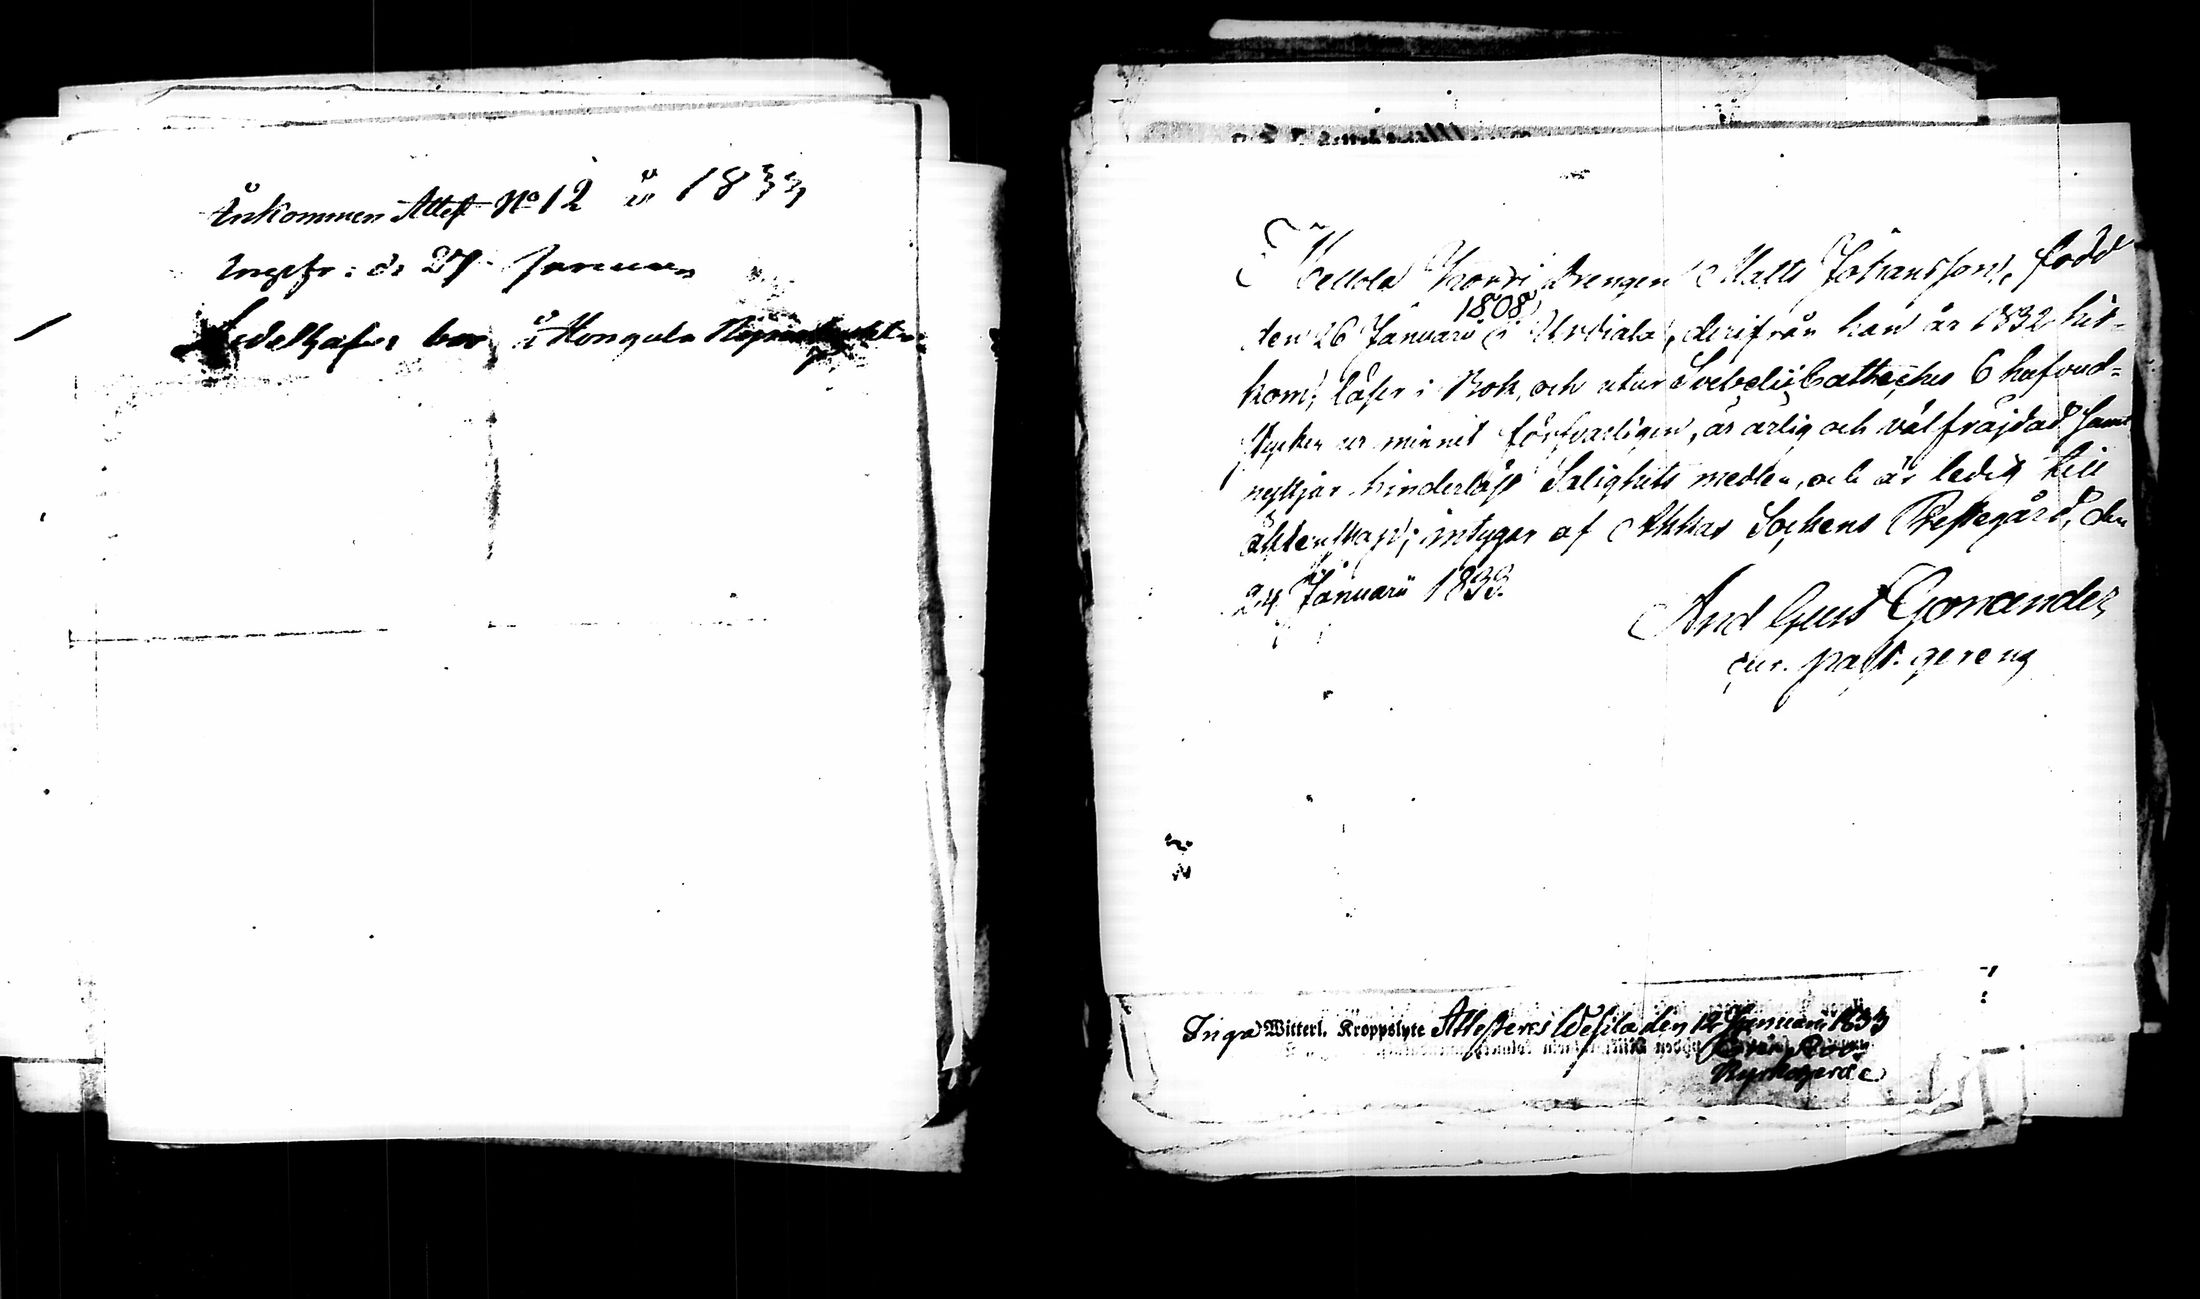 Ankommen Attest No 12 år 1833
d. 27 Januari
Sedelhafv: bor å Kongula
Drengen Matts Johansson, född
1808
den 26 Januarii i Urdiala, derifrån han år 1832 hit-
kom, läser i Bok, och utur Svebelii Catheches 6 hufvud-
stycken ur minnet försvarligen, är ärlig och välfräjdad samt
nyttjar hinderlöst Salighets medlen, och är ledig till
äktenskap; intygar af Akkas Sockens Prestegård, den
24 Januarii 1833.
And Gust Gonander
past.
Inga Witterl. Kroppslyte Attesteras Wesilax den 12 Januari 1833